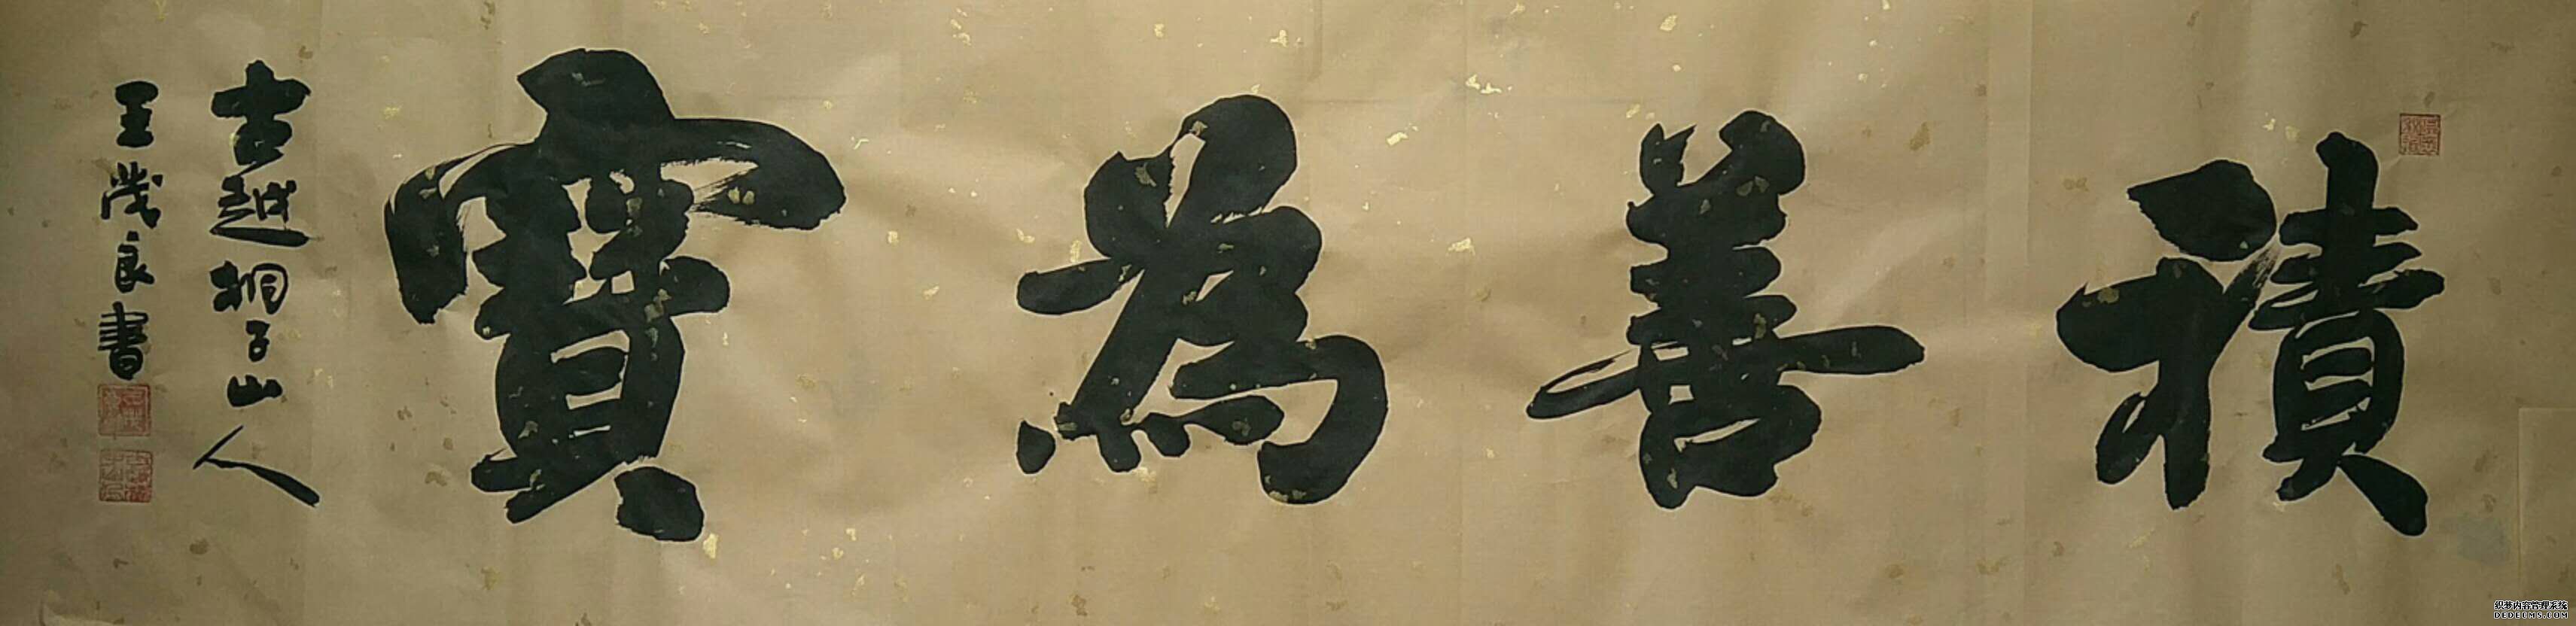 積善為寶
古越桐子山人
王茂良書
织梦内容管理系统
DEDECMS.COM